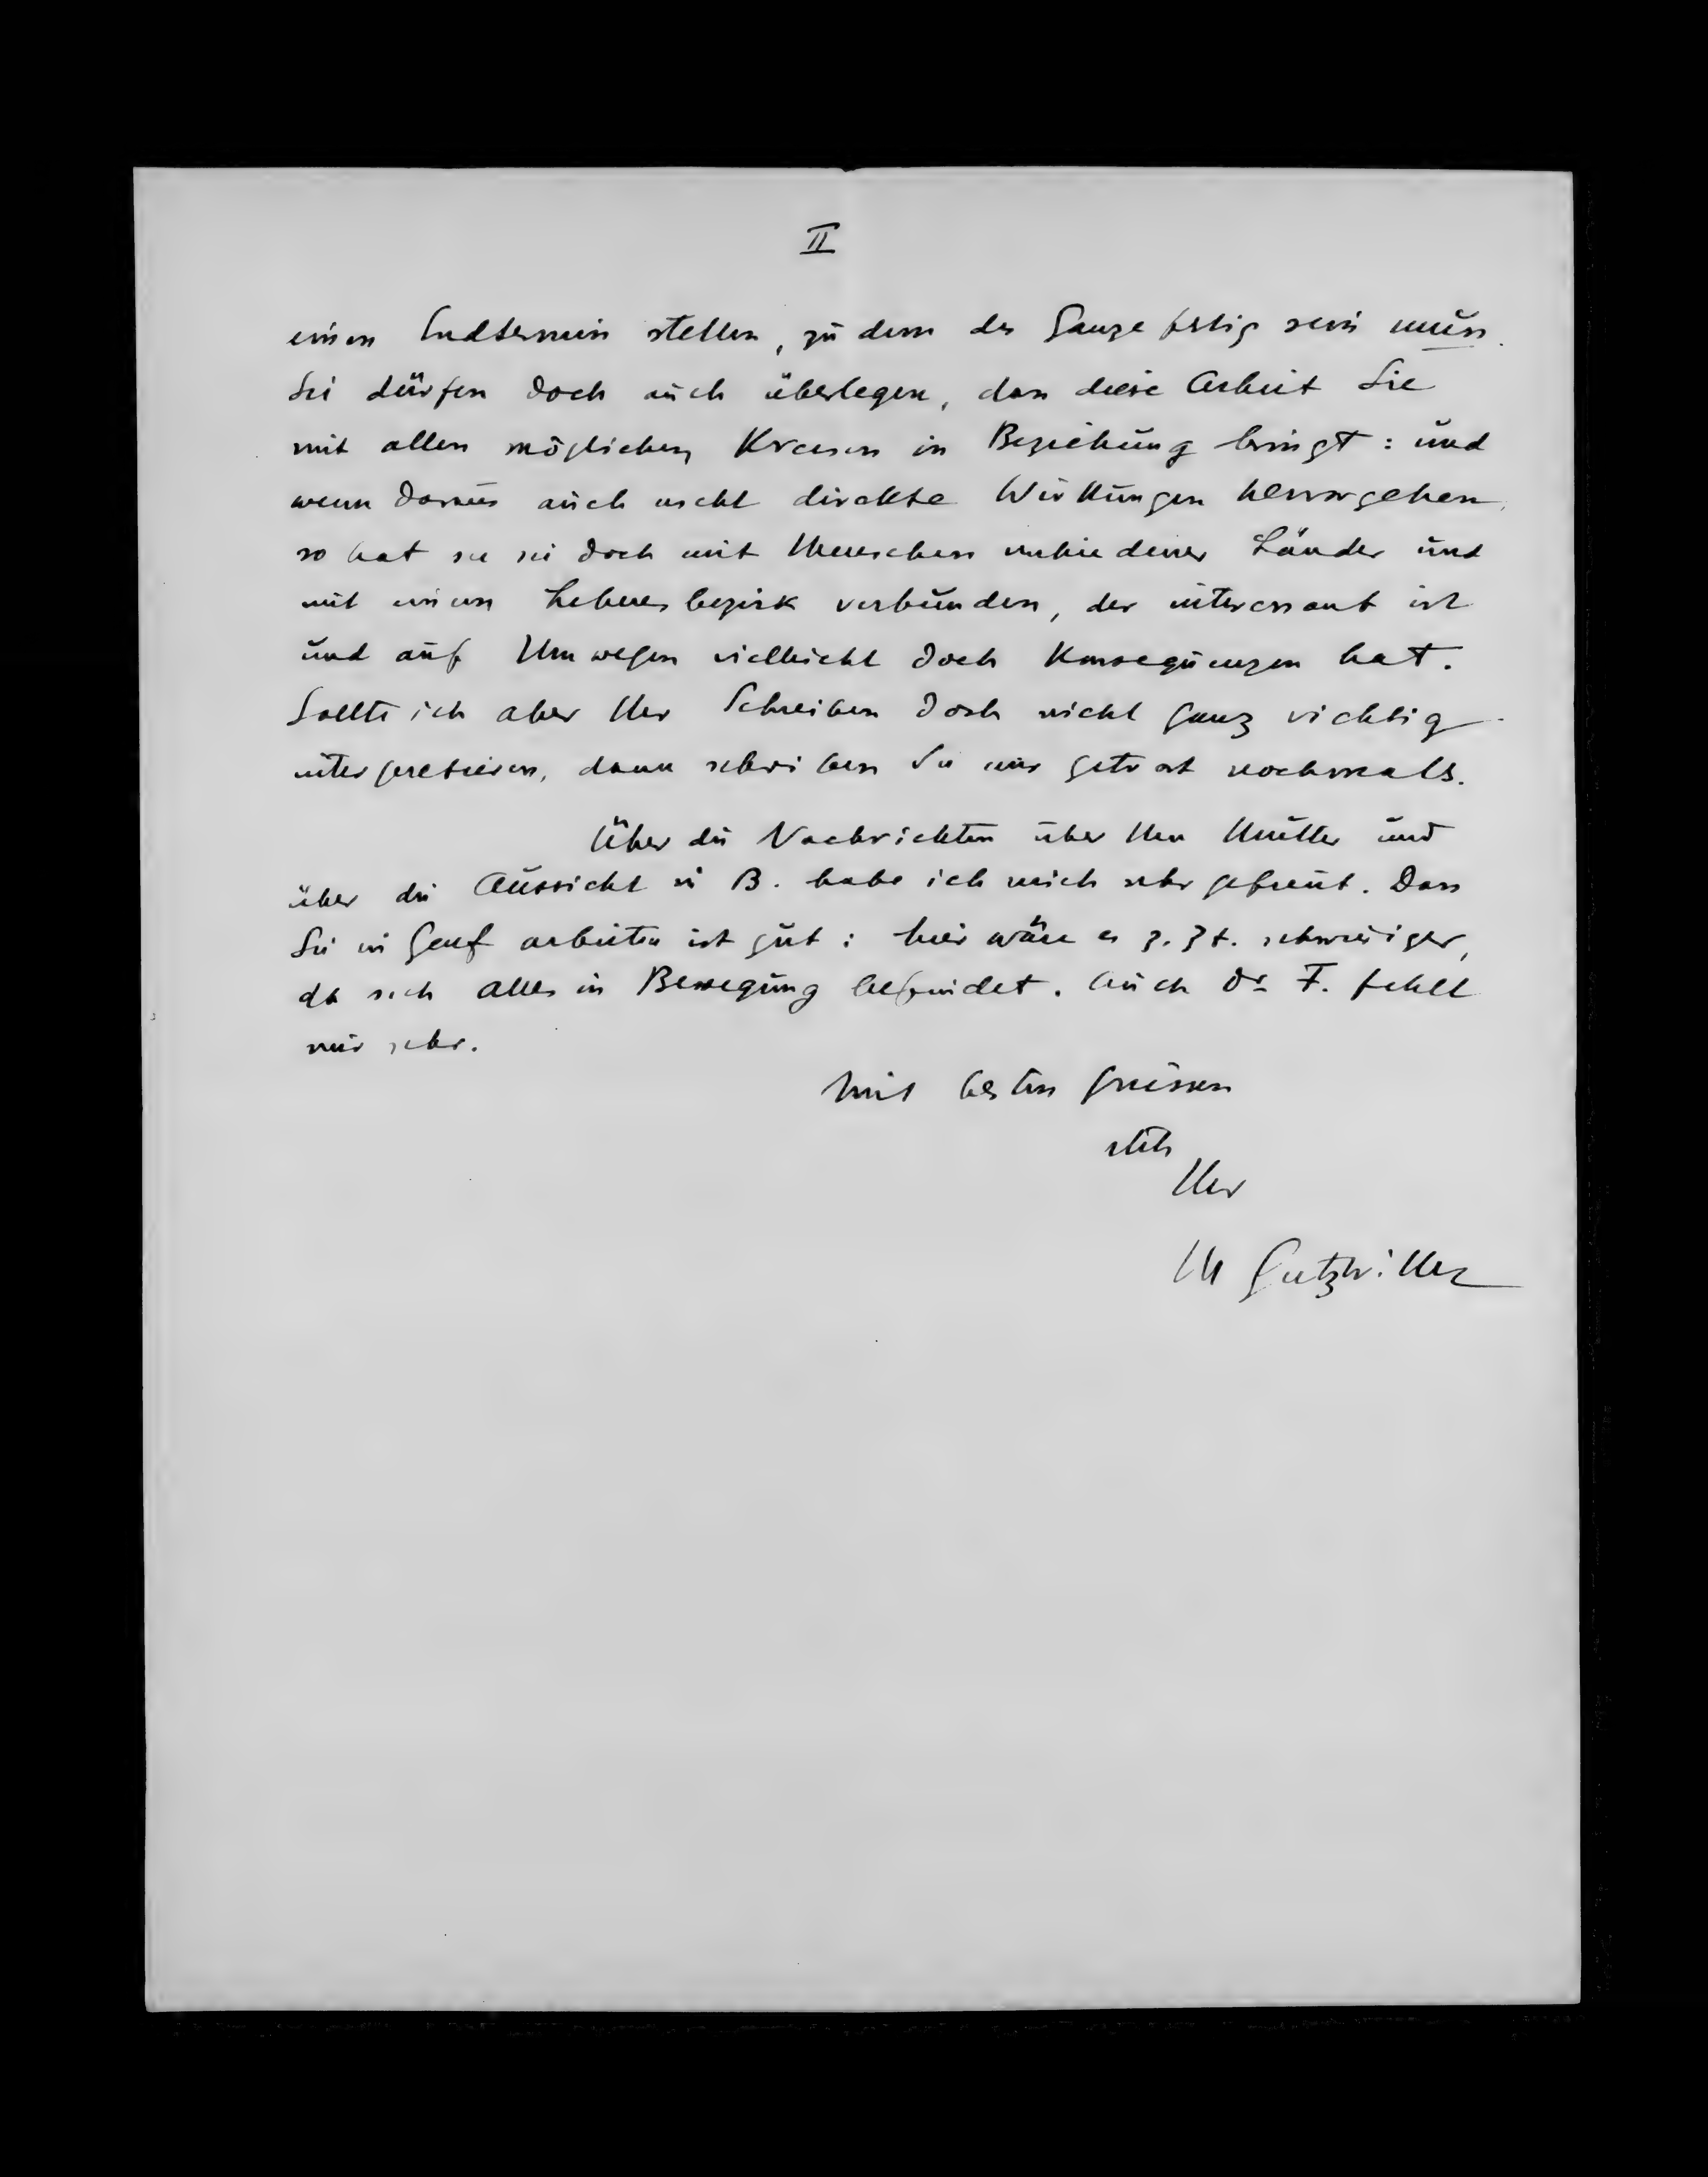 II
einen Endtermin stellen, zu dem das Ganze fertig sein muss.
Sie dürfen doch auch überlegen, dass diese Arbeit Sie
mit allen möglichen Kreisen in Beziehung bringt: und
wenn daraus auch nicht direkte Wirkungen hervorgehen,
so hat sie Sie doch mit Menschen verschiedener Länder und
mit einem Lebensbezirk verbunden, der interessant ist
und auf Umwegen vielleicht doch Konsequenzen hat.
Sollte ich aber Ihr Schreiben doch nicht ganz richtig
interpretieren, dann schreiben Sie mir getrost nochmals.
Über die Nachrichten über Ihre Mutter und
über die Aussicht in B. habe ich mich sehr gefreut. Dass
Sie in Genf arbeiten ist gut: hier wäre es z. Zt. schwieriger,
da sich alles in Bewegung befindet. Auch Dr F. fehlt
mir sehr.
Mit besten Grüssen
stets
Ihr
M Gutzwiller